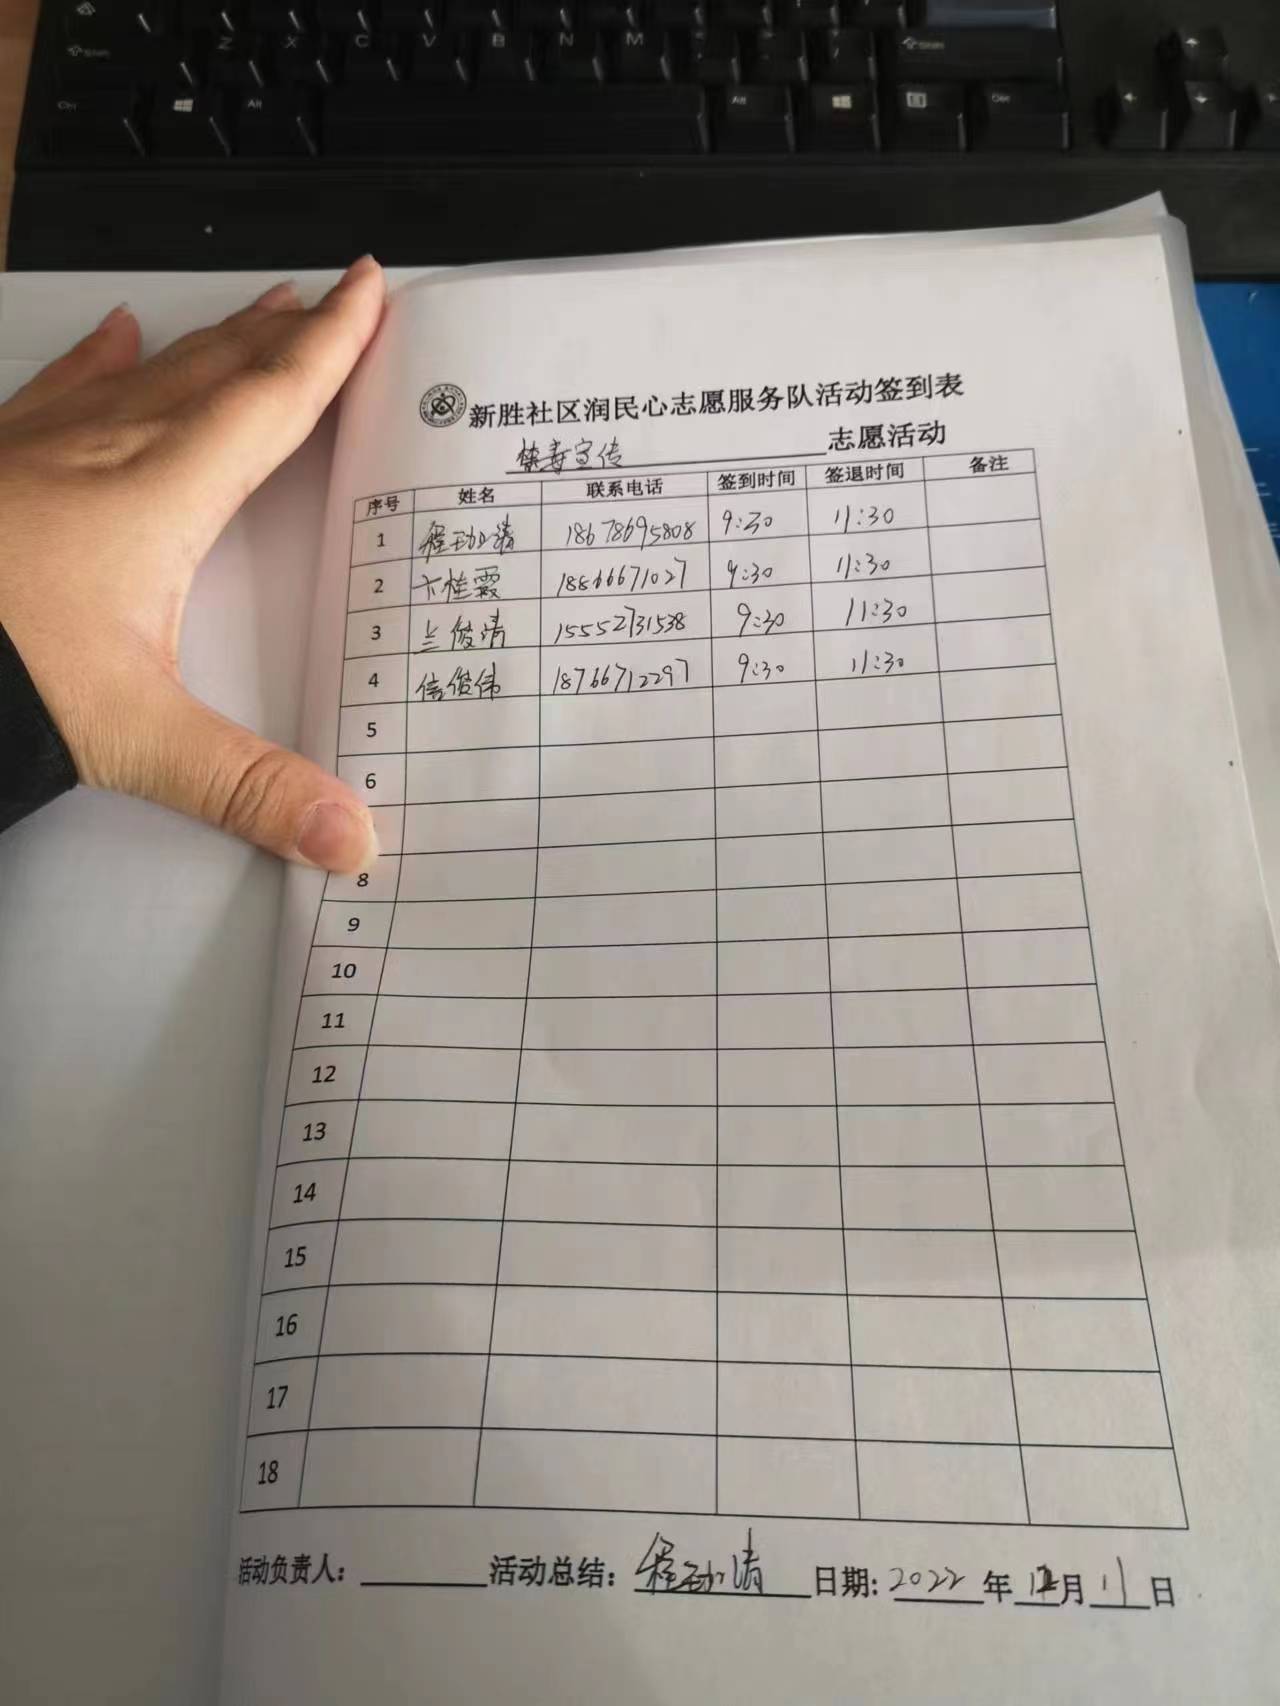 Shift
Z X C V B N M
Shift
Ctrl Alt Alt Ctrl
新胜社区润民心志愿服务队活动签到表
禁毒宣传 志愿活动
序号 姓名 联系电话 签到时间 签退时间 备注
1 程劲清 18678695808 9:30 11:30
2 卞桂霞 18866671027 9:30 11:30
3 兰俊清 15552731538 9:30 11:30
4 信俊伟 18766712297 9:30 11:30
5
6
8
9
10
11
12
13
14
15
16
17
18
活动负责人: 活动总结: 程劲清 日期: 2022 年 12 月 11 日